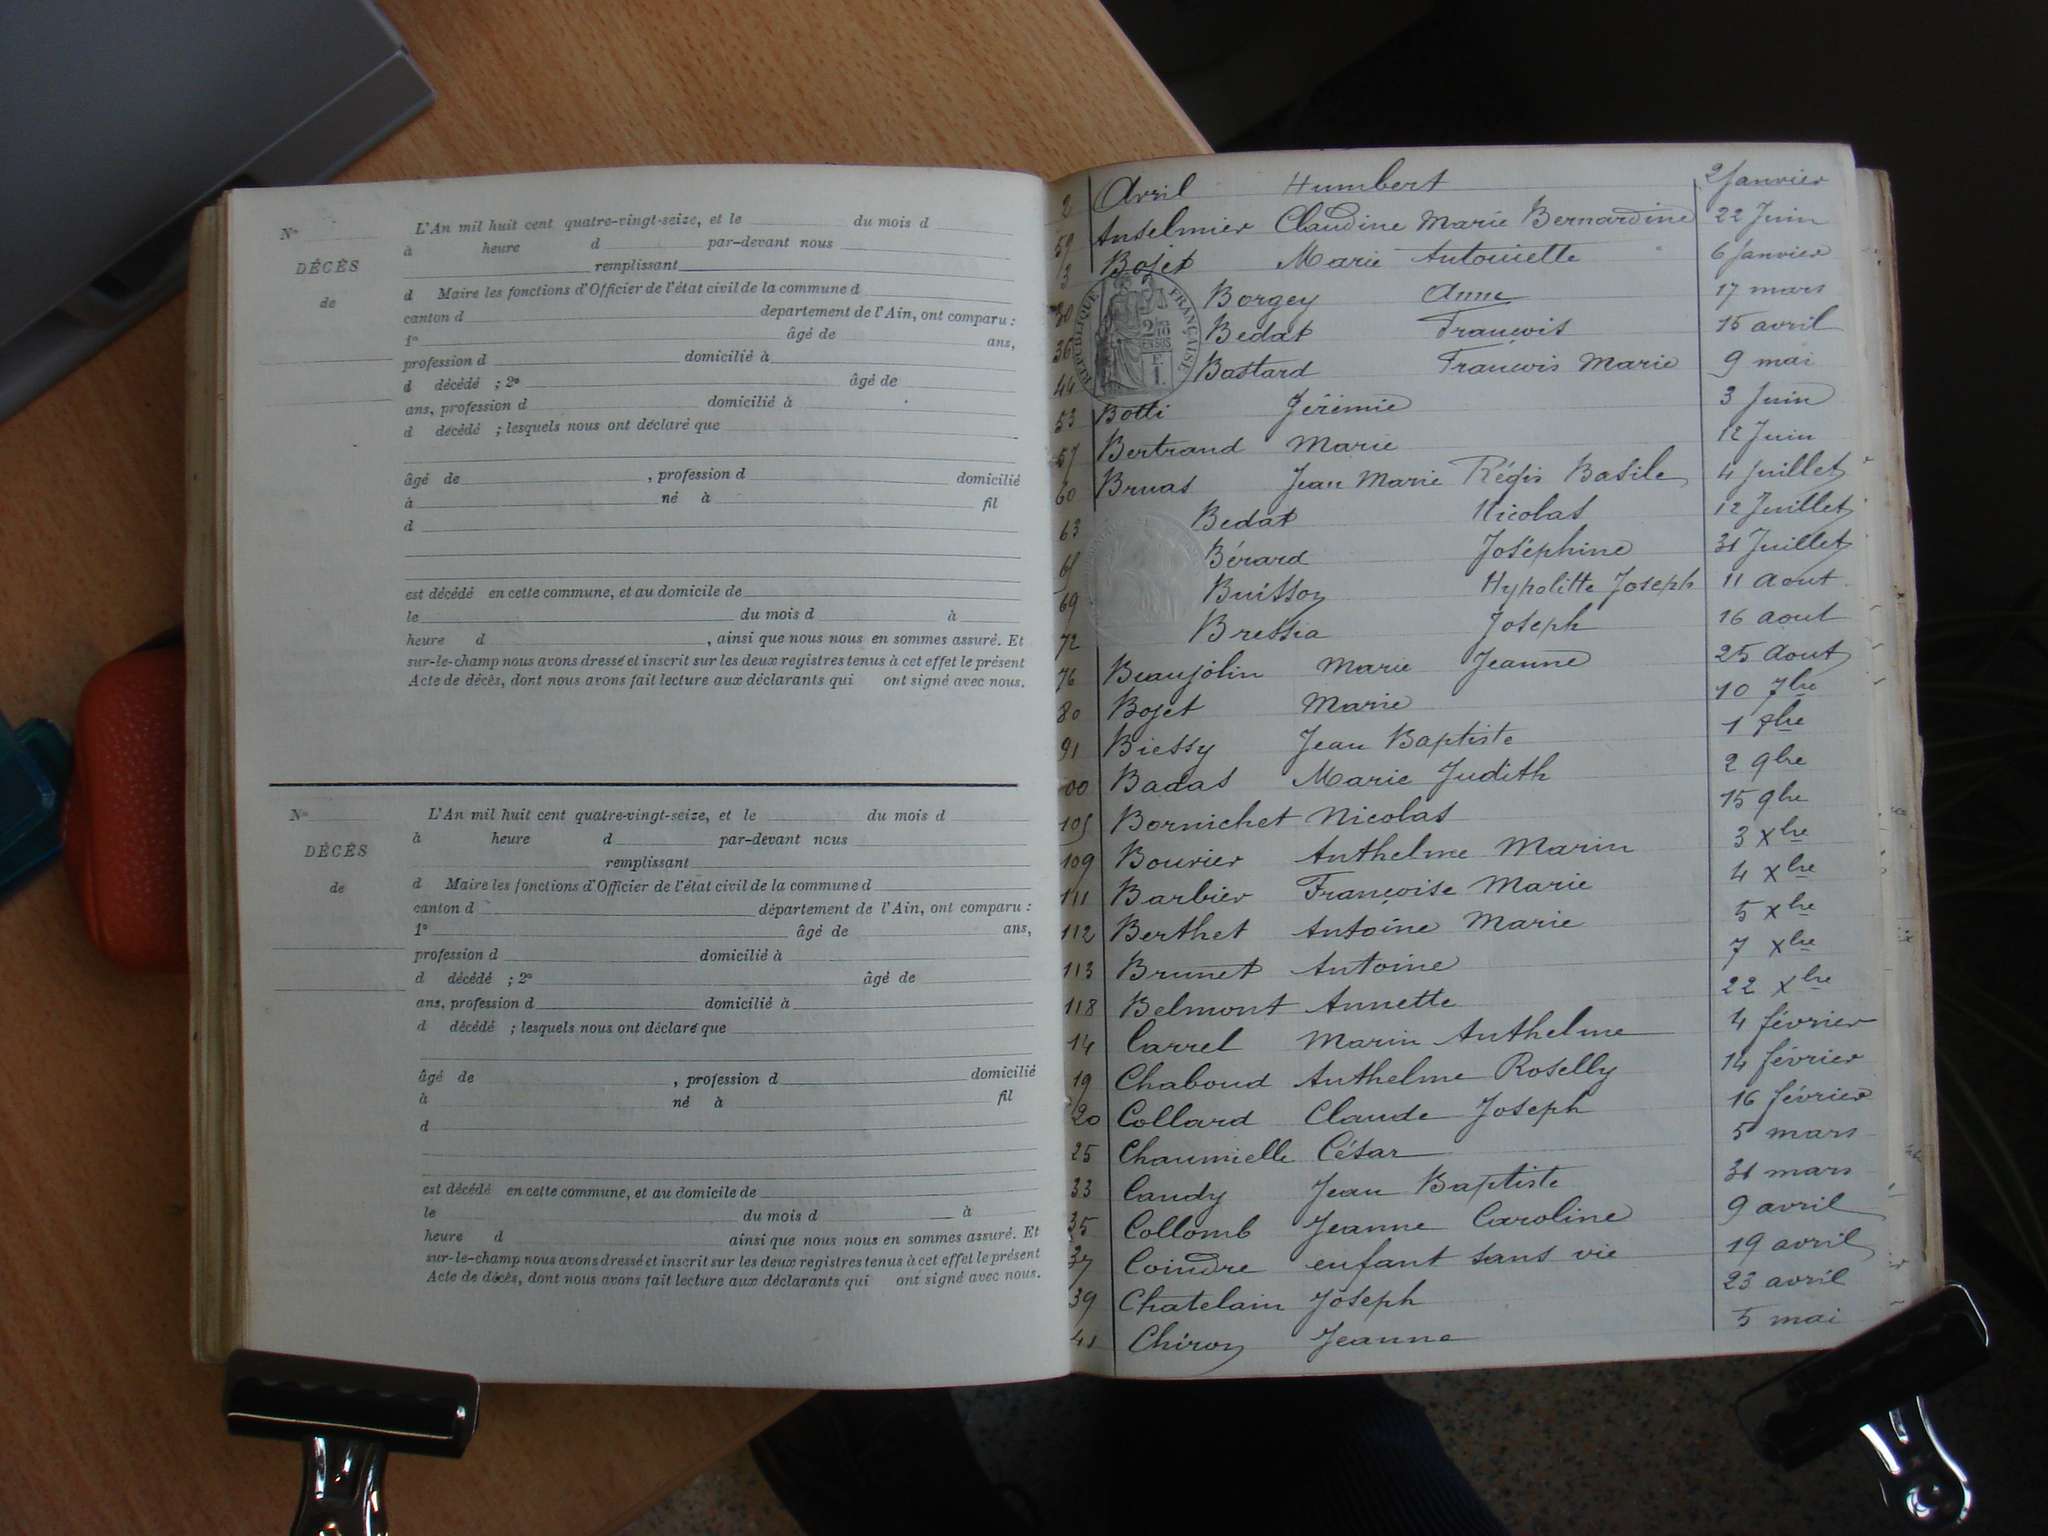 N°
DÉCÈS
de
L'An mil huit cent quatre-vingt-seize, et le du mois d
à heure d par-devant nous
remplissant
d Maire les fonctions d'Officier de l'état civil de la commune d
canton d département de l'Ain, ont comparu :
1° âgé de ans,
profession d domicilié à
d décédé ; 2° âgé de
ans, profession d domicilié à
d décédé ; lesquels nous ont déclaré que
âgé de , profession d domicilié
à né à fil
d
est décédé en cette commune, et au domicile de
le du mois d à
heure d , ainsi que nous nous en sommes assuré. Et
sur-le-champ nous avons dressé et inscrit sur les deux registres tenus à cet effet le présent
Acte de décès, dont nous avons fait lecture aux déclarants qui ont signé avec nous.
N°
DÉCÈS
de
L'An mil huit cent quatre-vingt-seize, et le du mois d
à heure d par-devant nous
remplissant
d Maire les fonctions d'Officier de l'état civil de la commune d
canton d département de l'Ain, ont comparu :
1° âgé de ans,
profession d domicilié à
d décédé ; 2° âgé de
ans, profession d domicilié à
d décédé ; lesquels nous ont déclaré que
âgé de , profession d domicilié
à né à fil
d
est décédé en cette commune, et au domicile de
le du mois d à
heure d ainsi que nous nous en sommes assuré. Et
sur-le-champ nous avons dressé et inscrit sur les deux registres tenus à cet effet le présent
Acte de décès, dont nous avons fait lecture aux déclarants qui ont signé avec nous.
2 Avril Humbert 2 Janvier
59 Anselmier Claudine Marie Bernardine 22 Juin
3 Bojet Marie Antoinette 6 Janvier
RÉPUBLIQUE FRANÇAISE
30 Borgey Anne 17 mars
36 Bedat François 15 avril
44 Bastard François Marie 9 mai
53 Botti Jérémie 3 Juin
57 Bertrand Marie 12 Juin
60 Bruas Jean Marie Régis Basile 4 Juillet
63 Bedat Nicolas 12 Juillet
Bérard Joséphine 31 Juillet
69 Buisson Hypolitte Joseph 11 aout
72 Bressia Joseph 16 aout
76 Beaujolin Marie Jeanne 25 Aout
80 Bojet Marie 10 7bre
91 Biessy Jean Baptiste 1
00 Badas Marie Judith 2 9bre
105 Bornichet Nicolas 15 9bre
109 Bouvier Anthelme Marin 3 Xbre
111 Barbier Françoise Marie 4 Xbre
112 Berthet Antoine Marie 5 Xbre
113 Brunet Antoine 7 Xbre
118 Belmont Annette 22 Xbre
14 Carrel Marin Anthelme 4 février
19 Chaboud Anthelme Roselly 14 février
20 Collard Claude Joseph 16 février
25 Chaumielle César 5 mars
33 Candy Jean Baptiste 31 mars
35 Collomb Jeanne Caroline 9 avril
37 Coindre enfant sans vie 19 avril
39 Chatelain Joseph 23 avril
41 Chiron Jeanne 5 mai